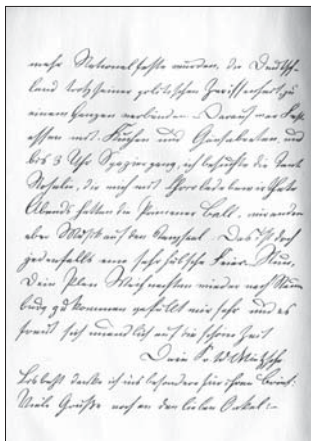 mehr Nationalfeste würden, die Deutsch-
land trotz seiner politischen Zerrissenheit, zu
einem Ganzen verbinden. Darauf war Fest-
essen mit Kuchen und
bis 3 Uhr Spaziergang, ich besuchte die Tante
Rosalie, die mich mit Chocolade bewirthete
Abends hatten die Primaner Ball, wir andern
aber Musik auf dem Tanzsaal. Das ist doch
jedenfalls eine sehr hübsche Feier. Nun,
Dein Plan Weihnachten wieder nach Naum
burg zu kommen gefällt mir sehr und es
freut sich unendlich auf die schöne Zeit
Dein Fr. W. Nietzsche
bestens danke ich ins besondere für ihren Brief.
Viele Grüße noch an den lieben Onkel.